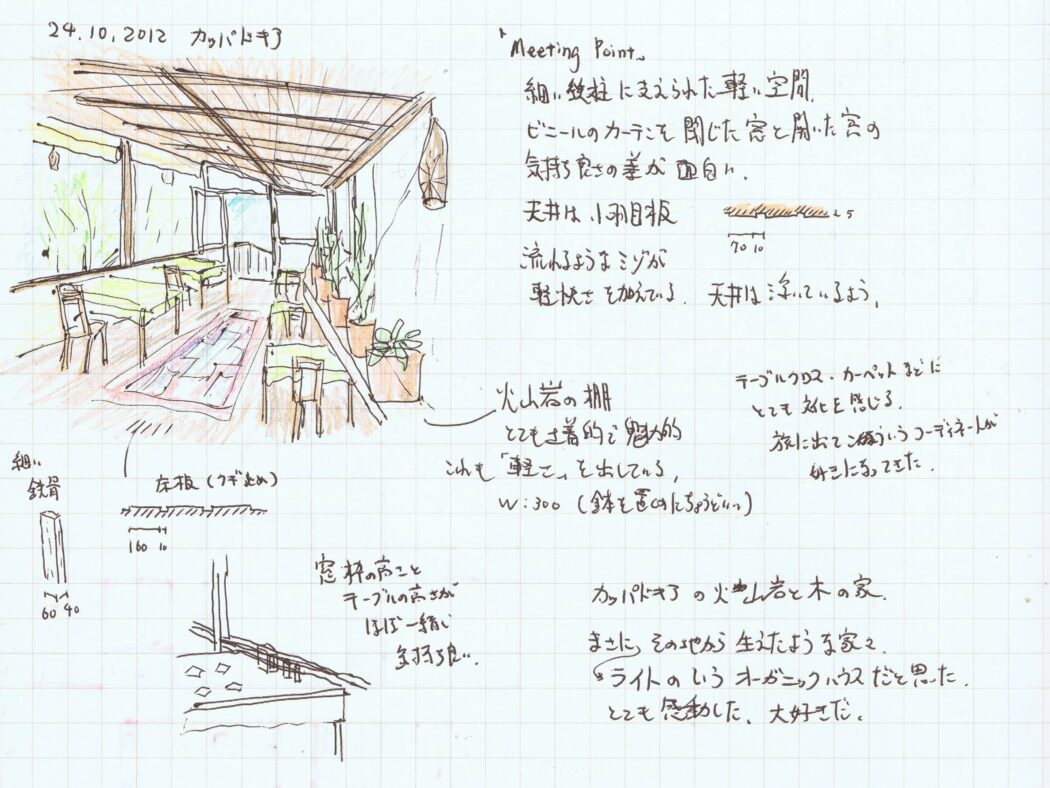 24.10.2012 カッパドキア
「Meeting Point」
細い鉄柱に支えられた軽い空間.
ビニールのカーテンを閉じた窓と開いた窓の
気持ち良さの差が面白い.
天井は小羽目板
25
70 10
流れるようなミゾが
軽快さを加えている. 天井は浮いているよう.
火山岩の棚
とても土着的で魅力的
これも「軽さ」を出している.
W:300 (鉢を置くのにちょうどいい)
テーブルクロス・カーペットなどに
とても文化を感じる.
旅に出てこういうコーディネートが
好きになってきた.
細い
鉄骨
60 40
床板(クギ止め)
160 10
窓枠の高さと
テーブルの高さが
ほぼ一緒で
気持ち良い.
カッパドキアの火山岩と木の家.
まさに、その地から生えたような家々.
ライトのいうオーガニックハウスだと思った.
とても感動した. 大好きだ.